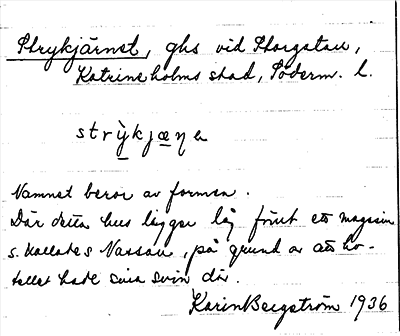 Strykjärnet, ghs vid Storgatan,
Katrineholms stad, Söderm. l.
strỳkjæṇa
Namnet beror av formen.
Där detta hus ligger låg förut ett magasin
s. kallades Nassau, på grund av att ho-
tellet hade sina svin där.
Karin Bergström 1936